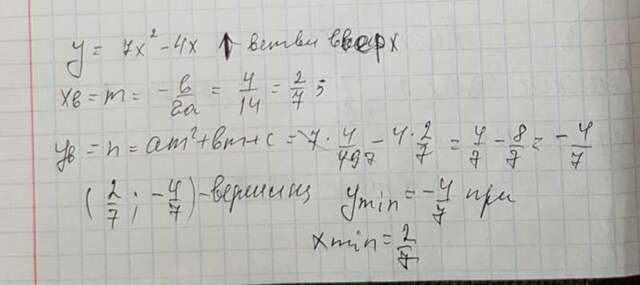 y = 7x² - 4x ↑ ветви вверх
xв = m = -b/2a = 4/14 = 2/7 ;
yв = n = am² + bm + c = 7 · 4/49 7 - 4 · 2/7 = 4/7 - 8/7 = -4/7
(2/7 ; -4/7) - вершина ymin = -4/7 при
xmin = 2/7